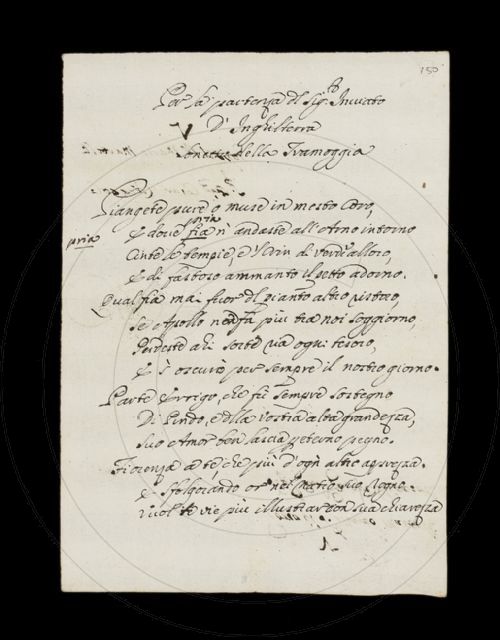 150
Per la partenza del Sig.r Inviato
D'Inghilterra
Sonetto della Tramoggia
Piangete pure o muse in mesto Coro,
pria
E dove fia n'andaste all'Arno intorno
pria
Cinte le tempie, e 'l crin di verd'alloro,
E di fastoso ammanto il petto adorno.
Qual fia mai fuor del pianto altro ristoro,
Se Apollo non fa più tra noi soggiorno,
Perdeste ahi sorte ria ogni tesoro,
E s'oscurò per sempre il nostro giorno.
Parte Errigo, che fù sempre sostegno
Di Pindo, e della vostra alta grandezza,
Suo Amor ben lascia eterno pegno.
Fiorenza a te, che più d'ogn'altro apprezza.
E sfolgorando or nel natio suo Regno
Vuol te vie più illustrar con sua chiarezza